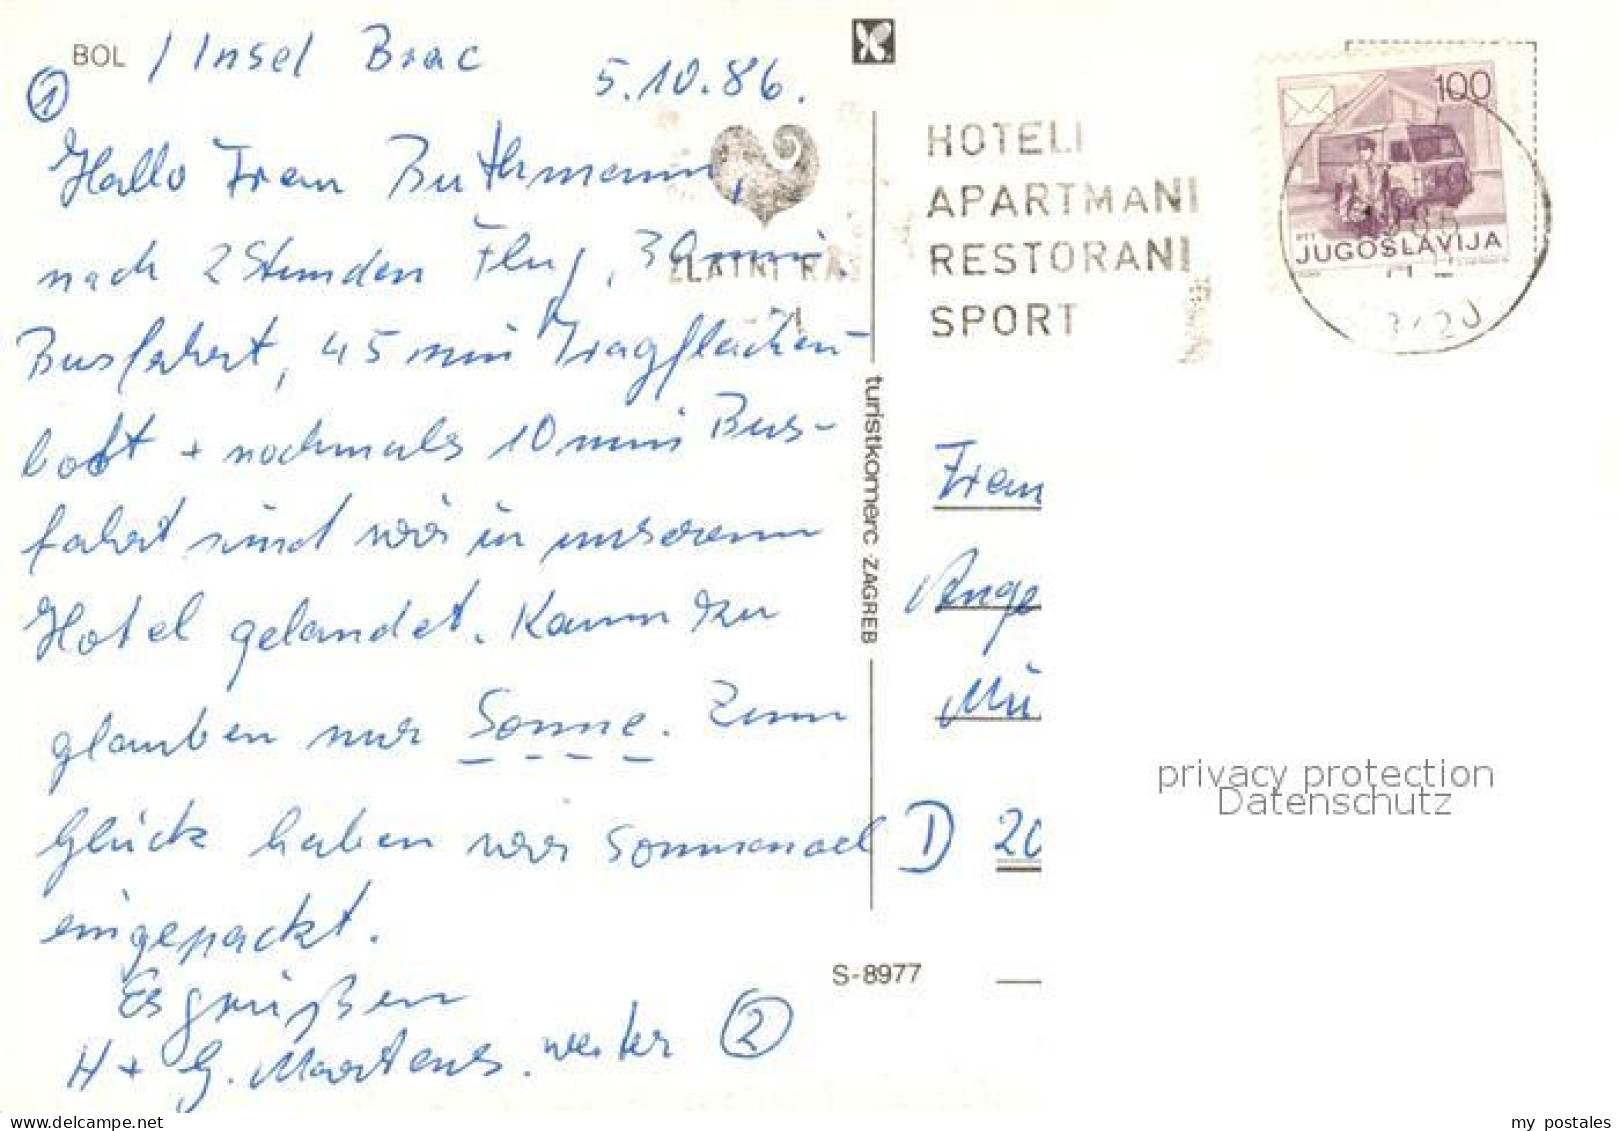 BOL / Insel Brac
① 5.10.86.
Hallo Frau Buthmann,
nach 2 Stunden Flug, 30 min.
Busfahrt, 45 min Tragflächen-
boot + nochmals 10 min Bus-
fahrt sind wir in unserem
Hotel gelandet. Kaum zu
glauben nur Sonne. Zum
Glück haben wir Sonnenoel
eingepackt.
Es grüßen
H + G. Martens. weiter ②
ZLATNI RA
turistkomerc ZAGREB
S-8977
HOTELI
APARTMANI
RESTORANI
SPORT
100
PTT
JUGOSLAVIJA
Frau
Ange
Mü
D 20
privacy protection
Datenschutz
www.delcampe.net
my_postales